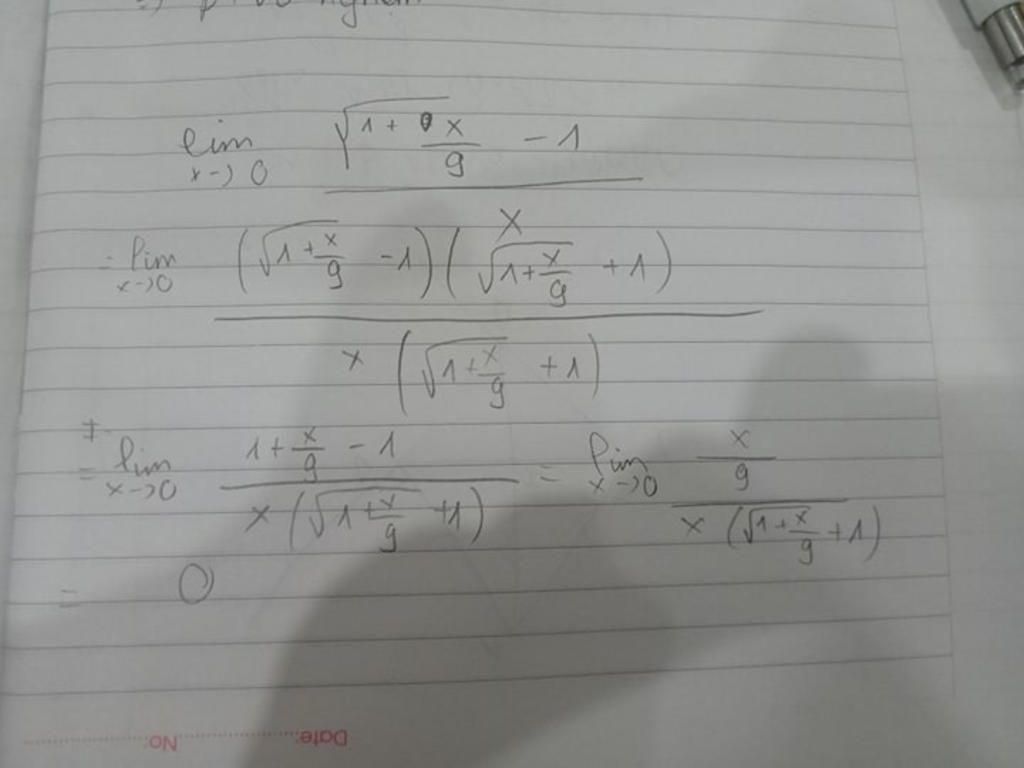 => p
lim x→0 (√(1 + x/9) - 1) / x
= lim x→0 ((√(1 + x/9) - 1)(√(1 + x/9) + 1)) / (x (√(1 + x/9) + 1))
= lim x→0 (1 + x/9 - 1) / (x (√(1 + x/9) + 1)) = lim x→0 (x/9) / (x (√(1 + x/9) + 1))
= 0
Date: No: